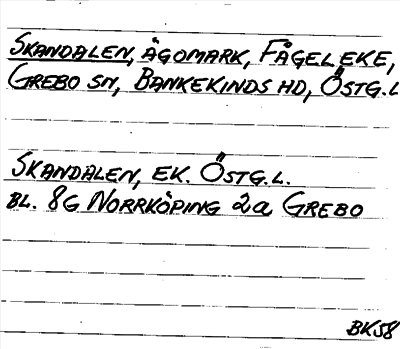 SKANDALEN, ÄGOMARK, FÅGELEKE,
GREBO SN, BANKEKINDS HD, ÖSTG.L
SKANDALEN, EK. ÖSTG.L.
BL. 8G NORRKÖPING 2a GREBO
BK58